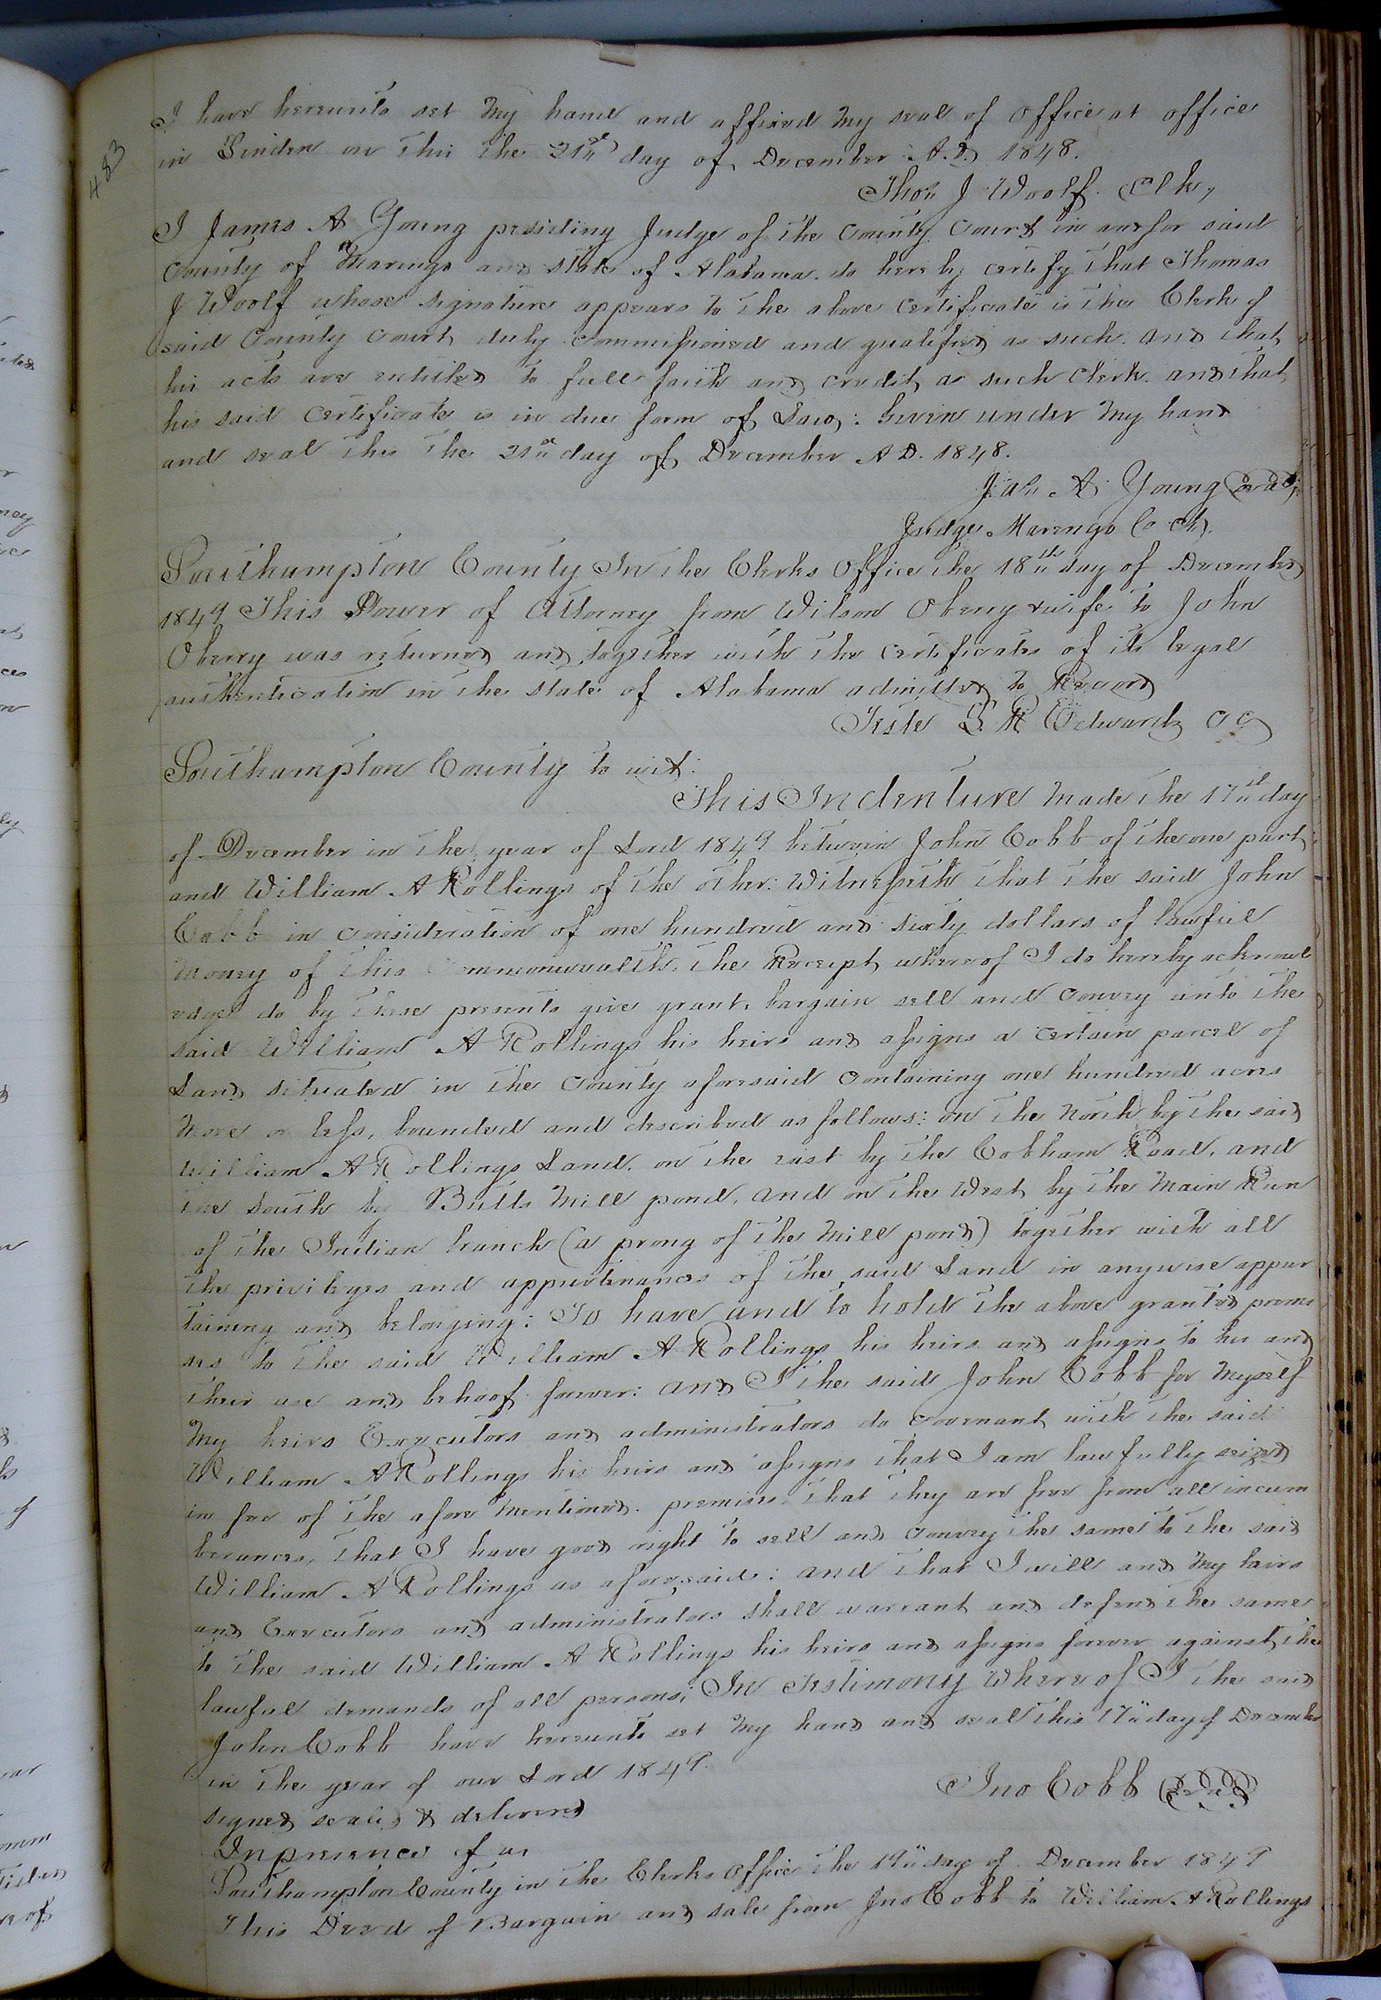 483
I have hereunto set my hand and affixed my seal of office at office
in Linden on this the 21st day of December A.D. 1848.
Thos J Woolf Clk,
I James A Young presiding Judge of the County Court in and for said
County of Marengo and State of Alabama do hereby certify that Thomas
J Woolf whose signature appears to the above certificate is the Clerk of
said County Court duly commissioned and qualified as such and that
his acts are entitled to full faith and credit as such Clerk and that
his said certificate is in due form of Law: Given under my hand
and seal this the 21st day of December AD. 1848.
Jas A. Young Seal
Judge Marengo Co Ct.
Southampton County In the Clerks Office the 18th day of December
1849 This Power of Attorney from Wilson Oberry & wife to John
Oberry was returned and together with the certificates of its legal
authentication in the state of Alabama admitted to Record
Teste L. R Edwards CC
Southampton County to wit:
This Indenture made the 17th day
of December in the year of Lord 1849 between John Cobb of the one part
and William A Rollings of the other: Witnesseth that the said John
Cobb in consideration of one hundred and sixty dollars of lawful
money of this Commonwealth, the Receipt whereof I do hereby acknowl
edge do by these presents give grant, bargain sell and convey unto the
said William A Rollings his heirs and assigns a certain parcel of
Land situated in the County aforesaid containing one hundred acres
more or less, bounded and described as follows: on the North by the said
William A Rollings Land, on the east by the Cobham Road, and
the South by Butts Mill pond, and on the West by the Main Run
of the Indian branch (a prong of the Mill pond) together with all
the privileges and appurtenances of the said Land in anywise apper
taining and belonging: To have and to hold the above granted premi
ses to the said William A Rollings his heirs and assigns to his and
their use and behoof forever: and I the said John Cobb for myself
my heirs Executors and administrators do covenant with the said
William A Rollings his heirs and assigns that I am lawfully seized
in fee of the afore mentioned premises that they are free from all incum
berances, that I have good right to sell and convey the same to the said
William A Rollings as aforesaid: and that I will and my heirs
and Executors and administrators shall warrant and defend the same
to the said William A Rollings his heirs and assigns forever against the
lawful demands of all persons: In Testimony Whereof I the said
John Cobb have hereunto set my hand and seal this 17th day of December
in the year of our Lord 1849.
Jno Cobb Seal
signed sealed & delivered
In presence of us
Southampton County in the Clerks Office the 19th day of December 1849
This Deed of Bargain and sale from Jno Cobb to William A Rollings